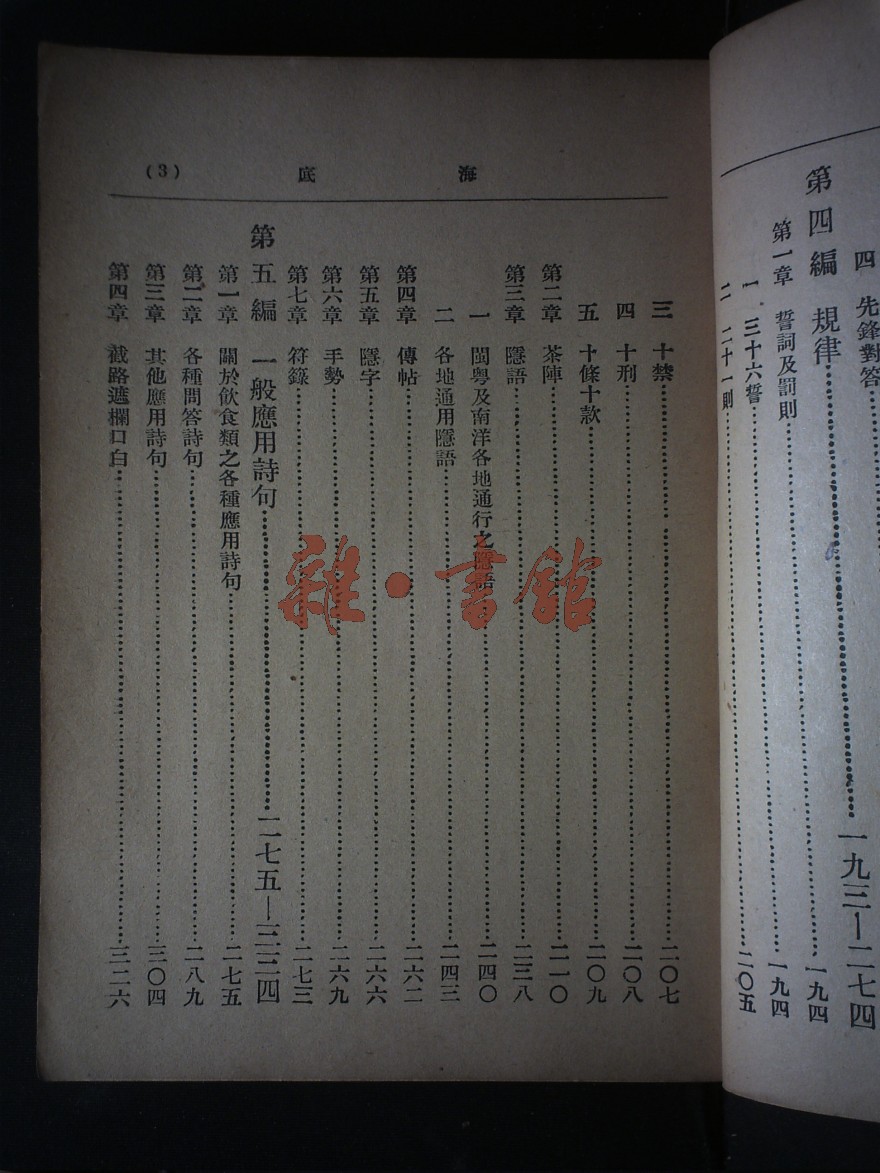 四 先鋒對答
第四編 規律……一九三—二七四
第一章 誓詞及罰則……一九四
一 三十六誓……一九四
二 二十一則……二〇五
海底 (3)
三 十禁……二〇七
四 十刑……二〇八
五 十條十款……二〇九
第二章 茶陣……二一〇
第三章 隱語……二三八
一 閩粵及南洋各地通行之隱語……二四〇
二 各地通用隱語……二四三
第四章 傳帖……二六二
第五章 隱字……二六六
第六章 手勢……二六九
第七章 符籙……二七三
第五編 一般應用詩句……二七五—三三四
第一章 關於飲食類之各種應用詩句……二七五
第二章 各種問答詩句……二八九
第三章 其他應用詩句……三〇四
第四章 截路遮欄口白……三二六
雜·書館